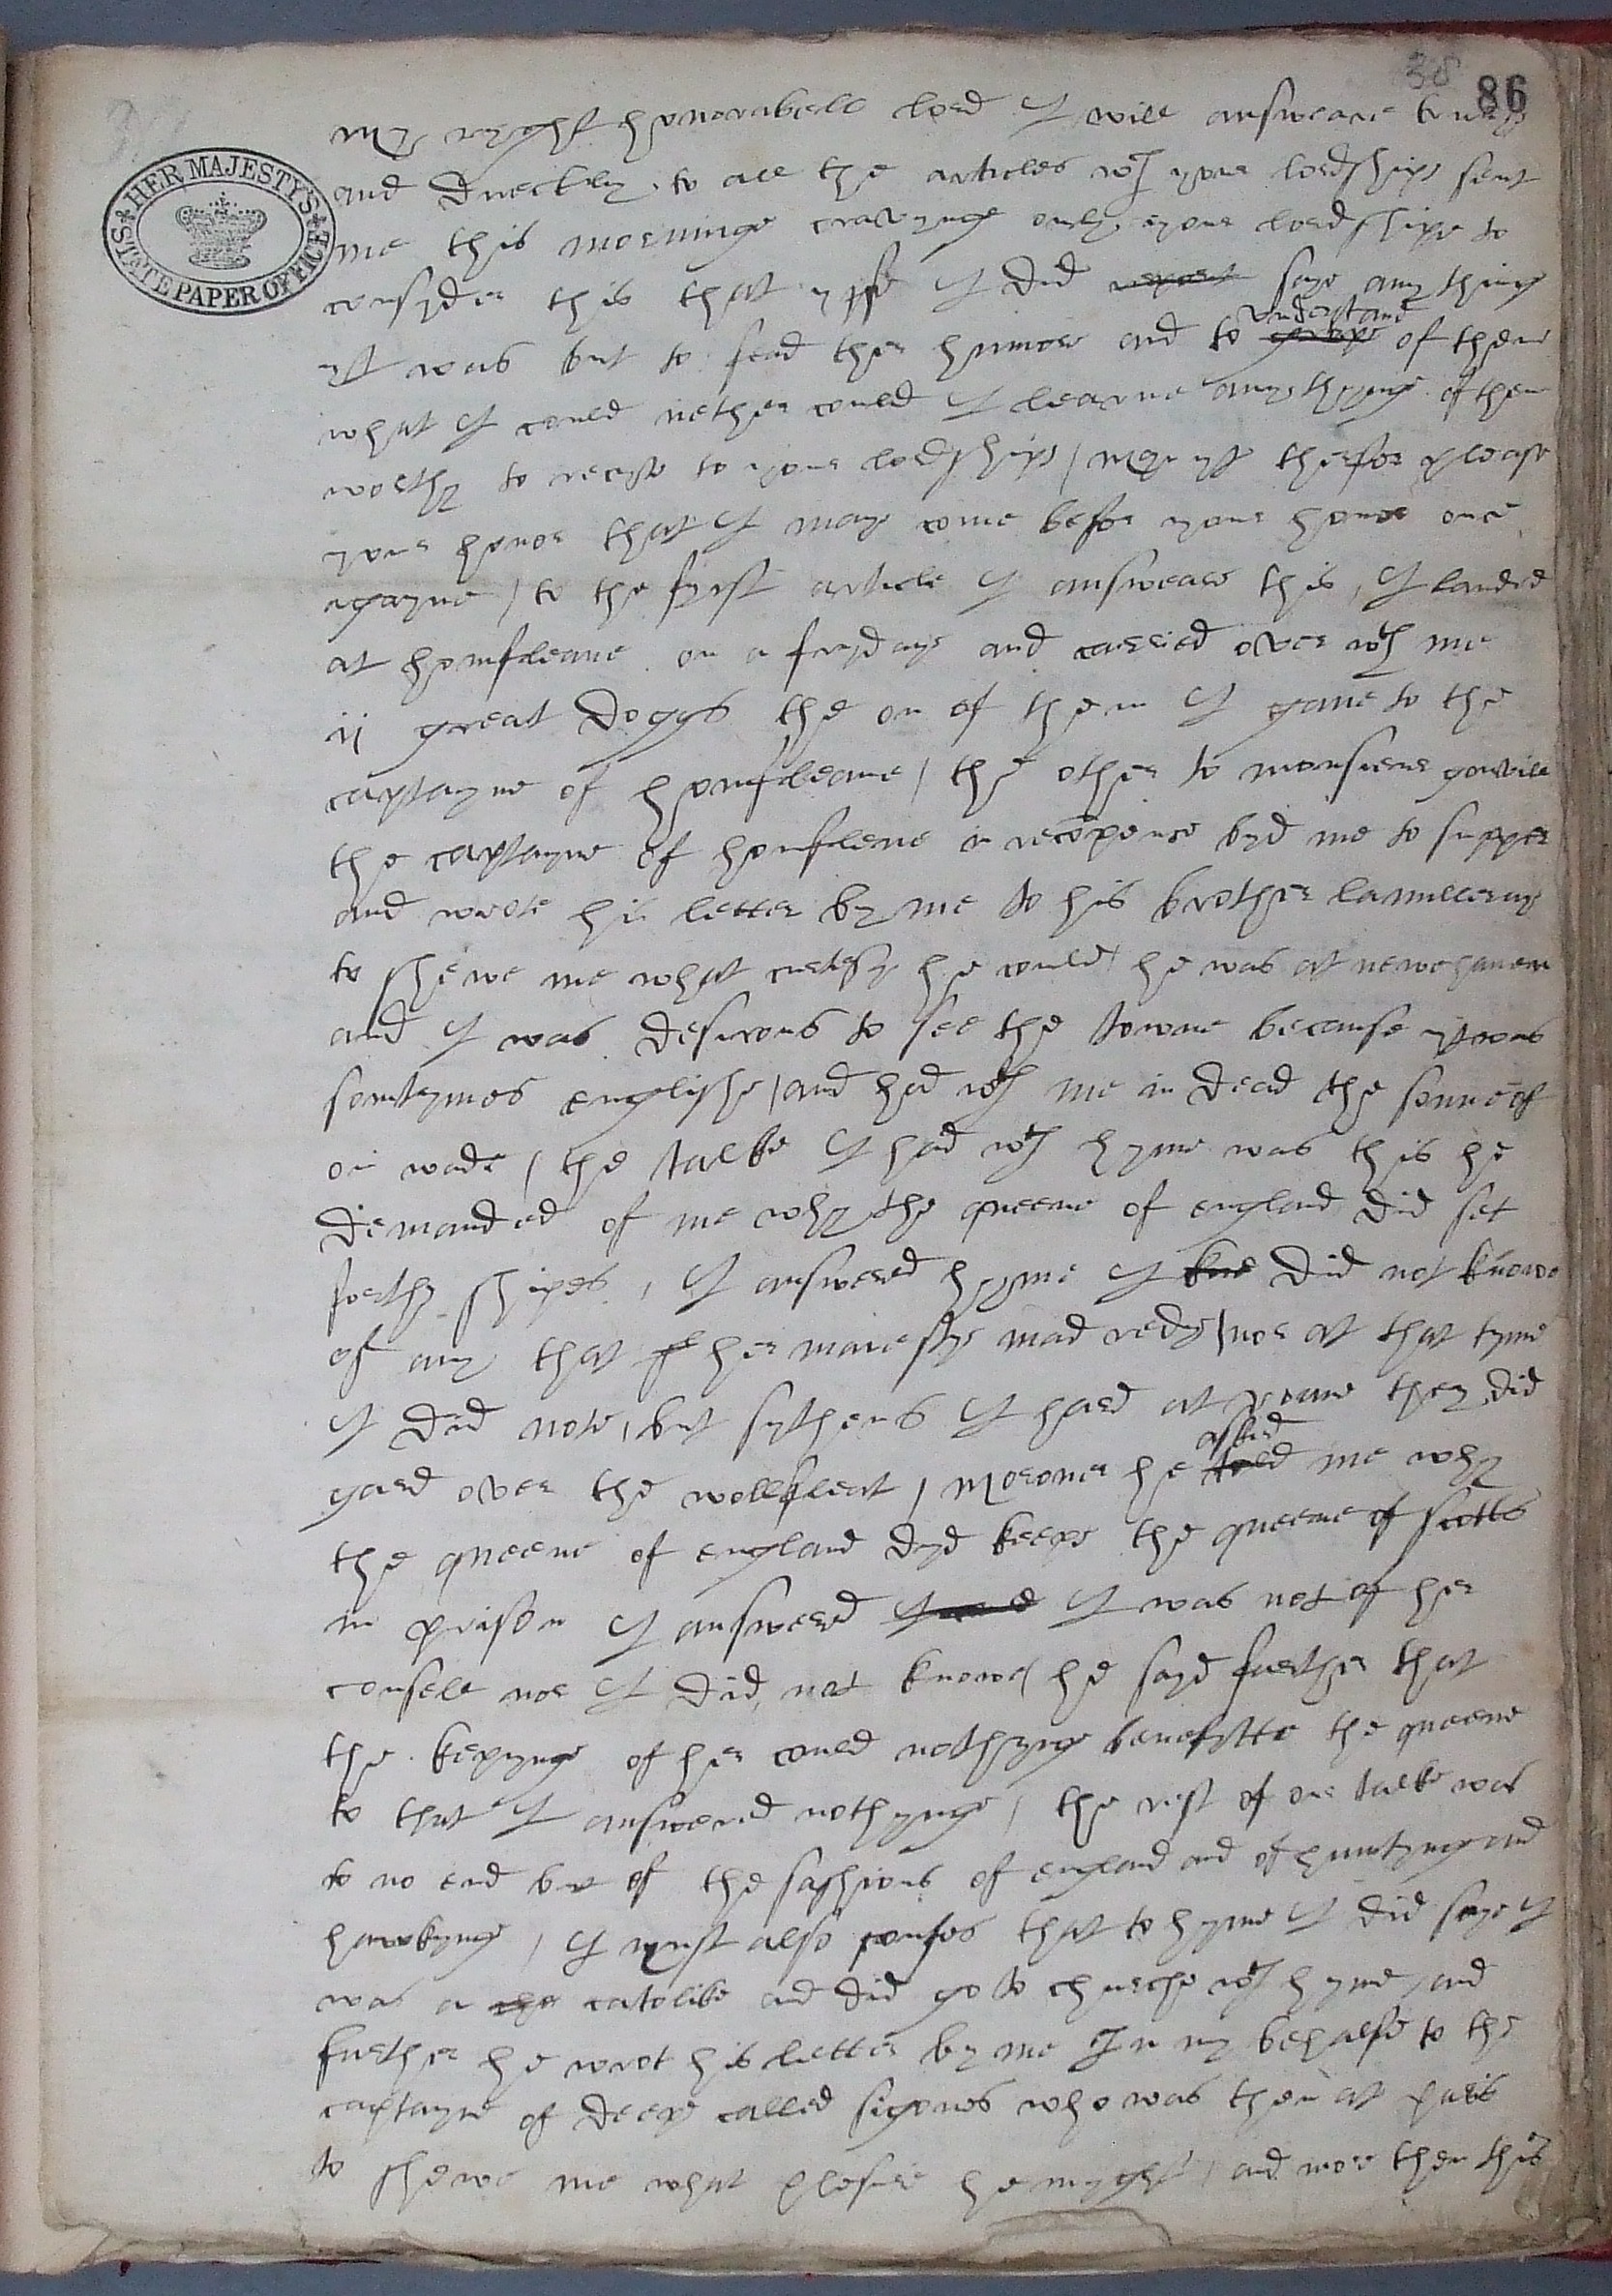 38 86
HER MAJESTY'S STATE PAPER OFFICE
my ryght honorabell lord I will answeare truly
and directly to all the articles wth your lordships sent
me this morninge cravynge only your lordshipe to
consyder this that yffe I did report saye any thing
yt was but to fead ther humor and to grope understand of them
what I could nether could I learne any thynge of them
worthy to recyte to your lordships / may yt therfor please
your honor that I may come befor your honor once
agayne / to the fyrst article I answeare this, I landed
at homfleaue on a frydaye and carried over wth me
ij great doggs the on of them I gaue to the
captayne of homfleaue / the other to monsieur gonvile
the captayne of homfleue in recōpence byd me to supper
and wrote his letter by me to his brother lamilleray
to shewe me what curtesy he could he was at newehauen
and I was desirous to see the towne because yt was
somtymes englishe / and had wth me in dead the sonne of
on wade / the talke I had wth hyme was this he
demanded of me why the queene of england did set
forthe shipes, I answered hyme I kne did not knowe
of any that her maiestye mad redy / nor at that tyme
I did note, but sythens I hard at roane they did
gard over the wollfleat / moroner he told asked me why
the queene of england dyd keepe the queene of scotts
in prison I answered I was not of her
consell nor I did not knowe / he sayd further that
the kepynge of her could nothynge benefytte the queene
to that I answered nothynge / the rest of our talke was
to no end but of the fashions of england and of huntynge and
hawkynge / I must also confes that to hyme I did saye I
was a catolike and did go to churche wth hyme / and
further he wrot his letter by me In my behalfe to the
captayne of deepe called sigones who was then at paris
to shewe me what plesure he myght / and more then this